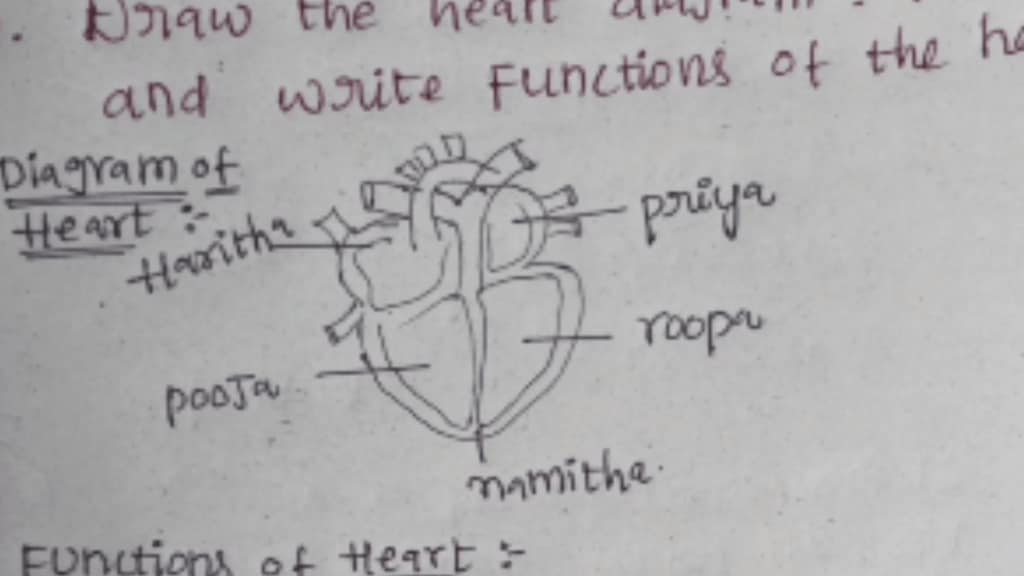 . Draw the heart diagram .
and write Functions of the
Diagram of
Heart :-
Haritha
priya
roopa
pooja
namitha.
Functions of Heart :-